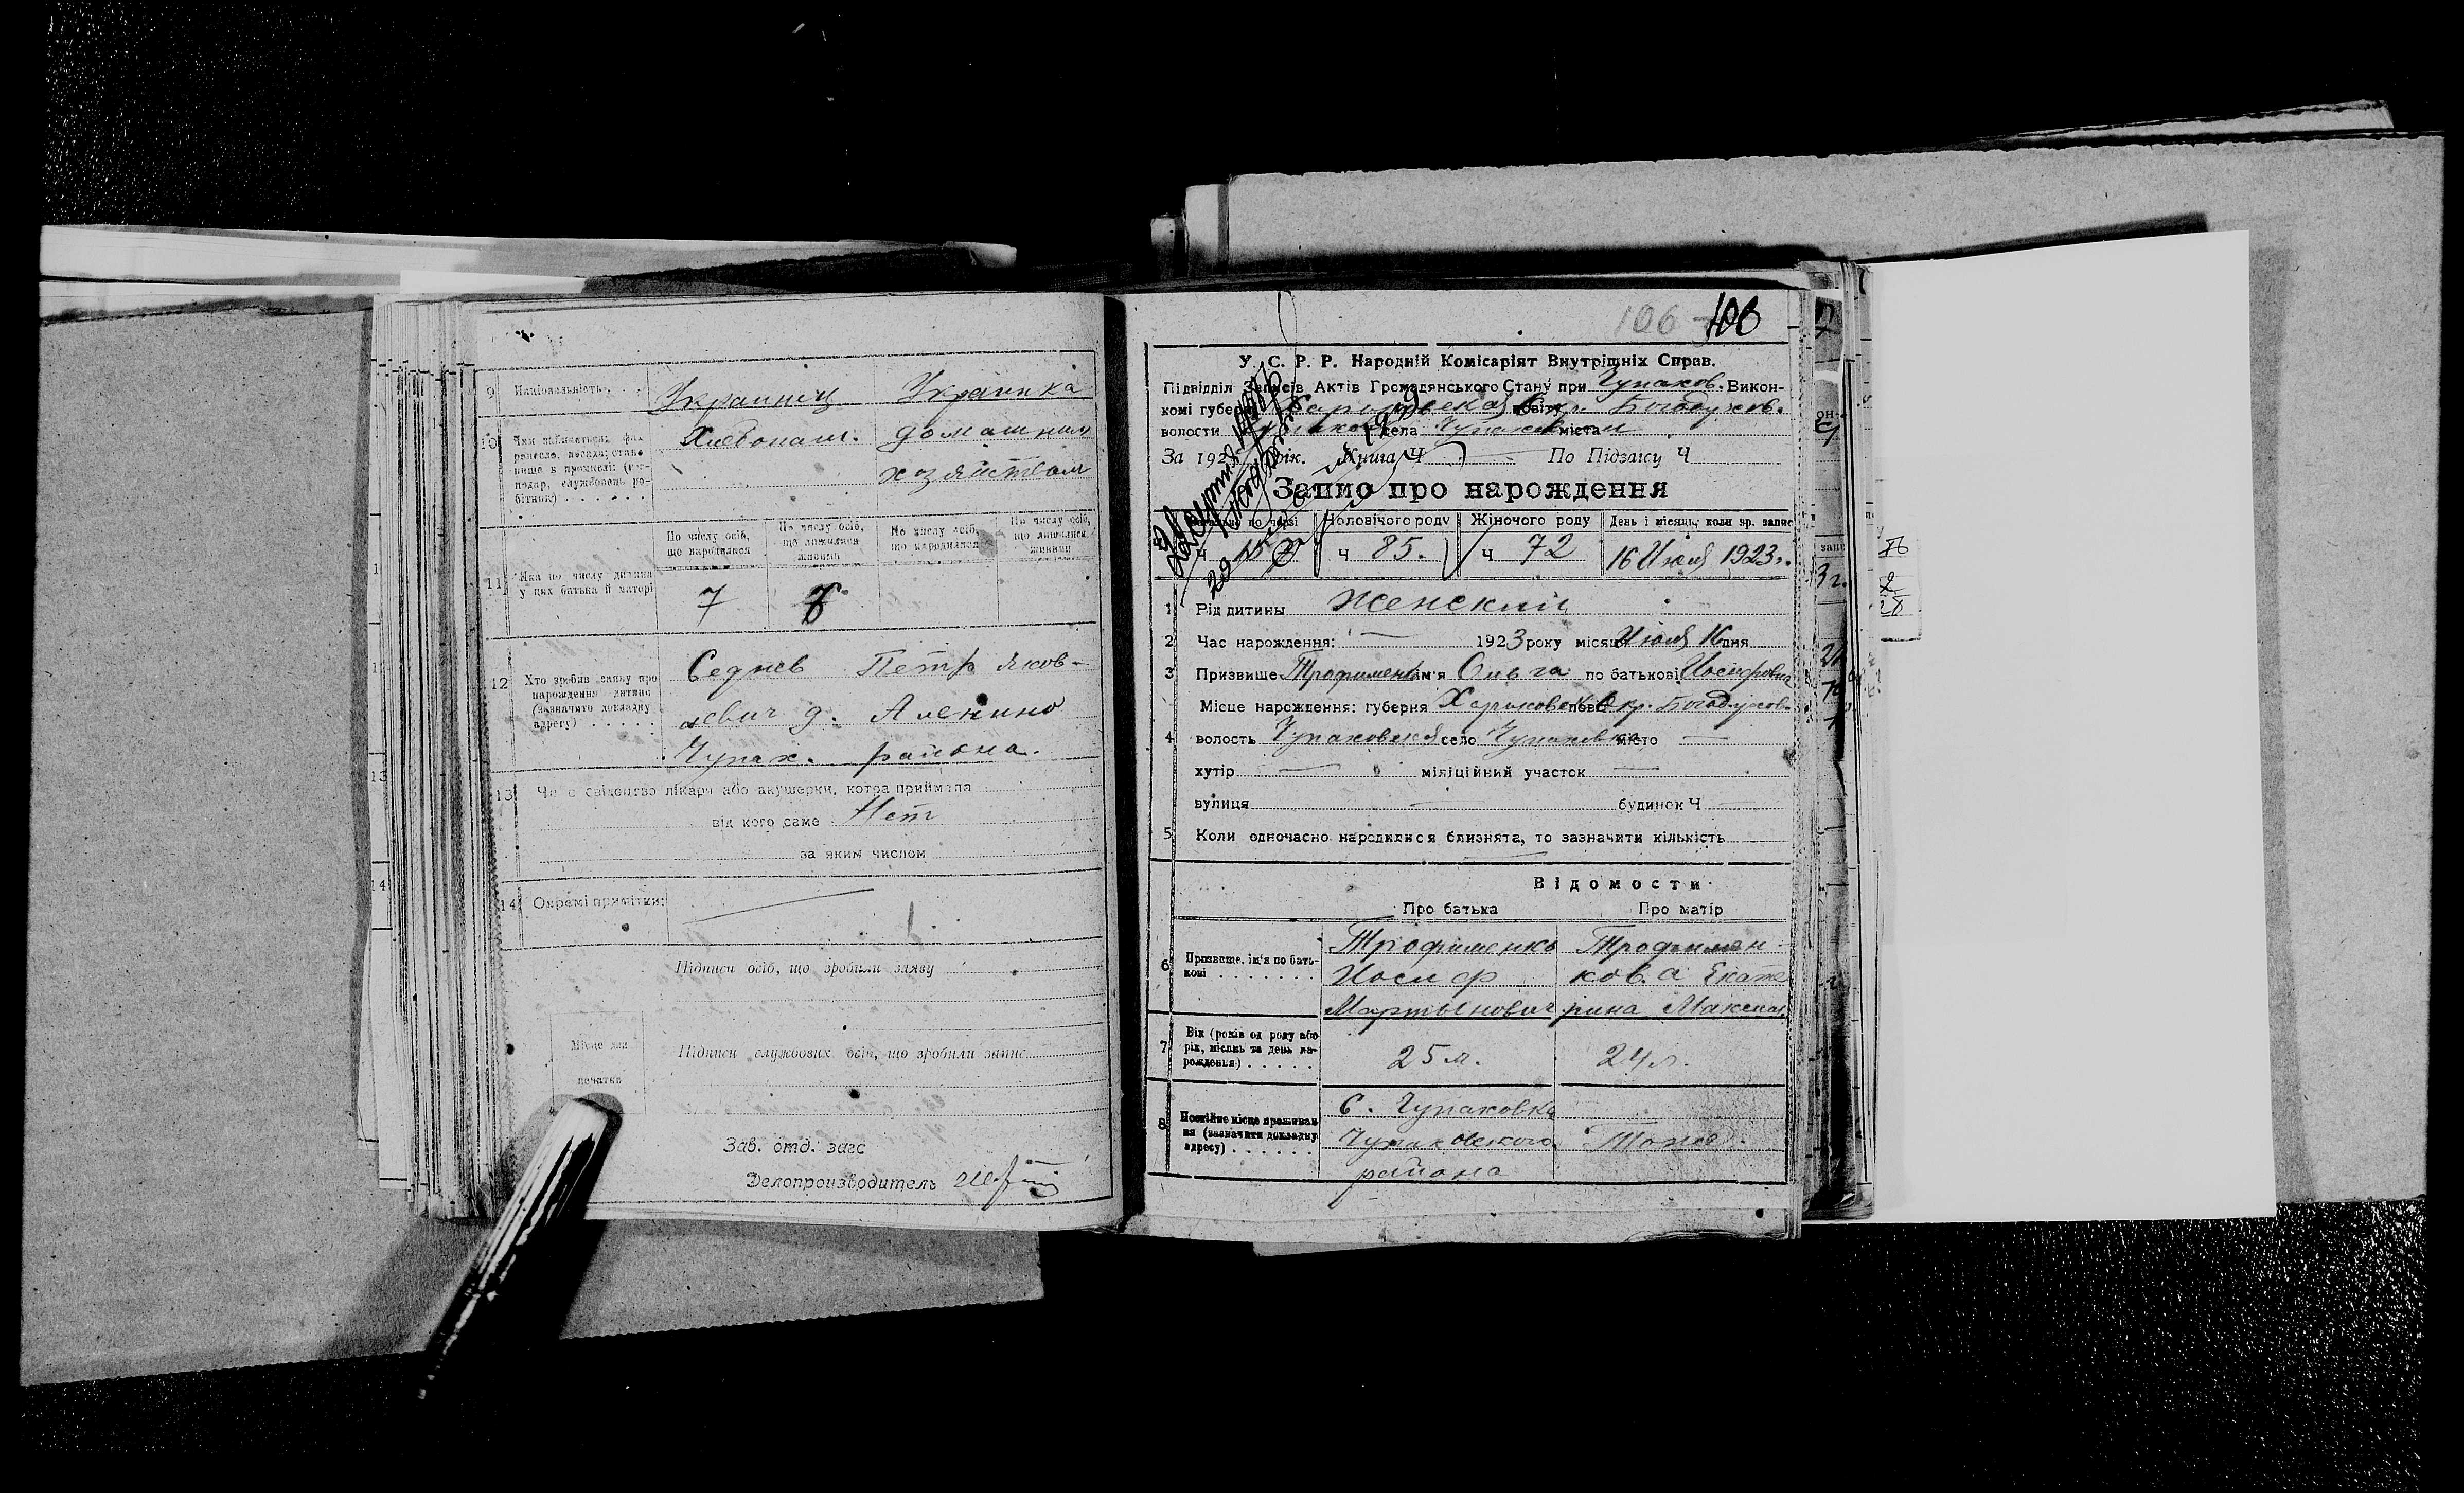 9 Національність . . . Украинец Украинка
10 Чим займається: фах, ремесло, посада; становище в промислі: (господар, службовець, робітник) . . . . . . Хлебопаш. домашним
хозяйством
По числу осіб, що народилися По числу осіб, що лишилися живими По числу осіб, що народилися По числу осіб, що лишилися живими
11 Яка по числу дитина у цих батька й матері 7
12 Хто зробив заяву про народження дитини (зазначити докладну адресу) . . . . . Седнев Петр Яков-
левич д. Аленино
Чупах. района.
13 Чи є свідоцтво лікаря або акушерки, котра приймала
від кого саме Нет
за яким числом
14 Окремі примітки:
Підписи осіб, що зробили заяву
Місце для печатки
Підписи службових осіб, що зробили запис
Зав. отд. загс
Делопроизводитель
106 106
У. С. Р. Р. Народній Комісаріят Внутрішніх Справ.
Підвідділ Записів Актів Громадянського Стану при Чупахов. Викон-
комі губерн Харьковская повіту Окр. Богодухов.
волости села Чупаховки міста
За 192 рік. Книга Ч По Підзаісу Ч
Запис про народження
Чоловічого роду Жіночого роду День і місяць, коли зр. запис
Ч 15 Ч 85. Ч 72 16 Июля 1923 г.
1 Рід дитины Женский
2 Час нарождення: 1923 року місяця Июля 16 дня
3 Призвище Трофименко ім'я Ольга по батькові Иосифовна
Місце нарождення: губерня Харьковск. повіт Окр. Богодухов.
4 волость Чупаховская село Чупаховка місто
хутір міліційний участок
вулиця будинок Ч
5 Коли одночасно народилися близнята, то зазначити кількість
Відомости
Про батька Про матір
6 Призвище, ім'я по батькові . . . . . . . Трофименко Трофимен-
Иосиф кова Екате
Мартынович рина Максим.
7 Вік (років од роду або рік, місяць та день народження) . . . . . 25 л. 24 л.
8 Постійне місце проживання (зазначити докладну адресу) . . . . . . С. Чупаховка
Чупаховского Тоже
района